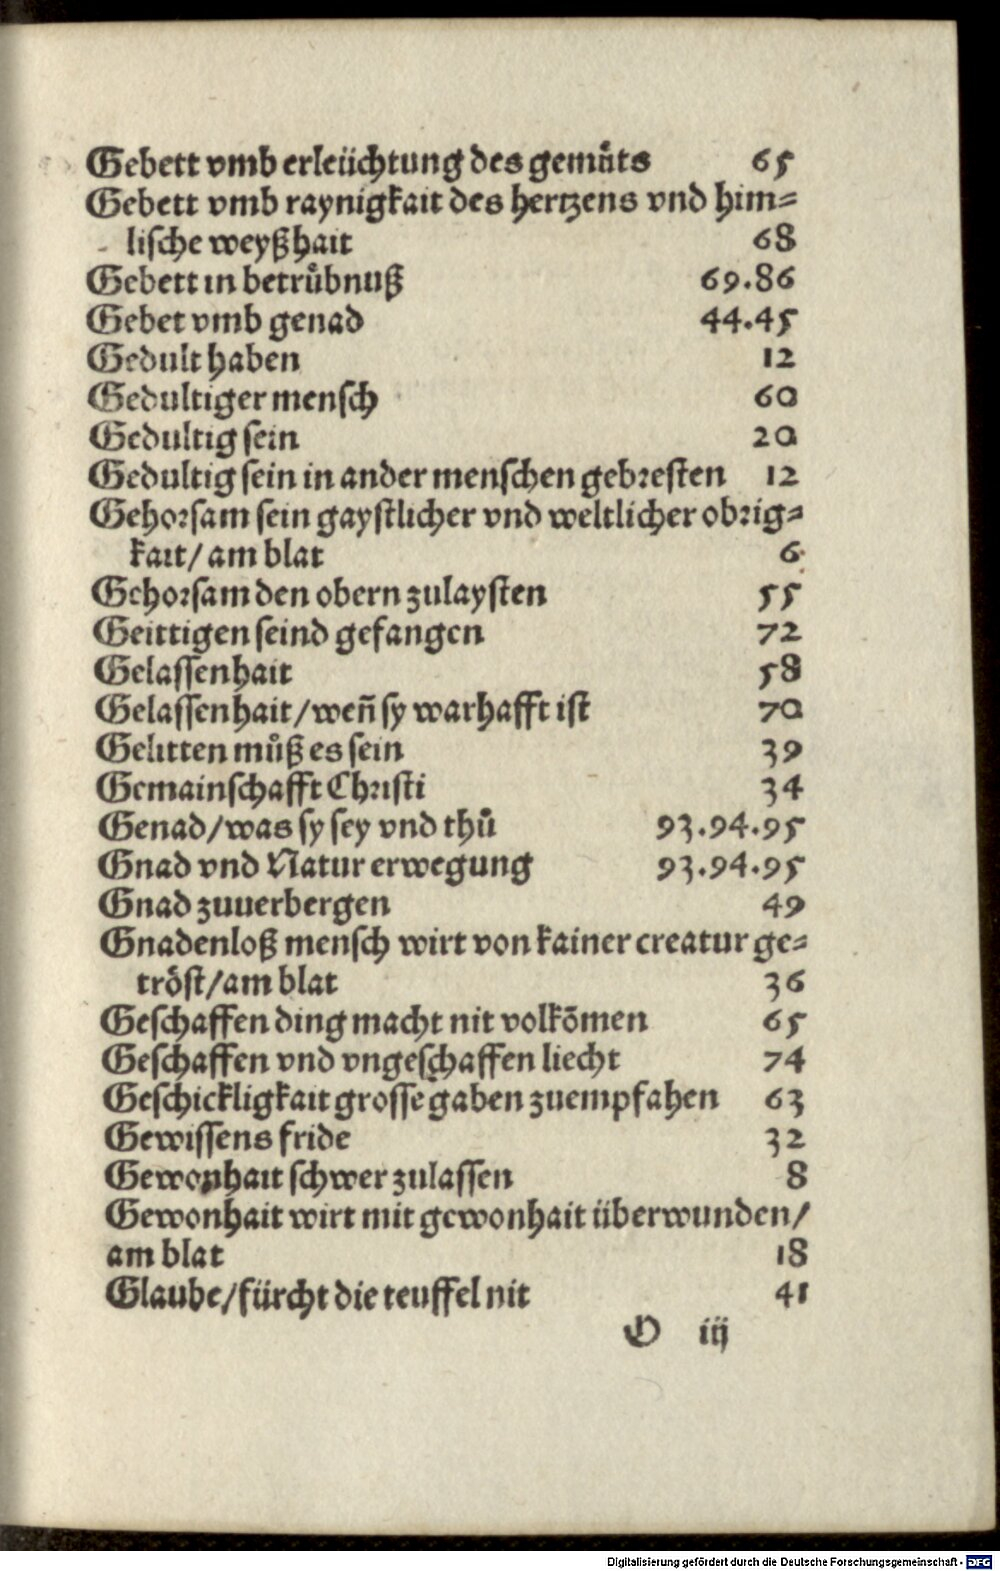 Gebett vmb erleüchtung des gemuͤts 65
Gebett vmb raynigkait des hertzens vnd him-
lische weyßhait 68
Gebett in betruͤbnuß 69.86
Gebet vmb genad 44.45
Gedult haben 12
Gedultiger mensch 60
Gedultig sein 20
Gedultig sein in ander menschen gebresten 12
Gehorsam sein gaystlicher vnd weltlicher obrig-
kait/ am blat 6
Gehorsam den obern zulaysten 55
Geittigen seind gefangen 72
Gelassenhait 58
Gelassenhait/ weñ sy warhafft ist 70
Gelitten muͦß es sein 39
Gemainschafft Christi 34
Genad/ was sy sey vnd thuͦ 93.94.95
Gnad vnd Natur erwegung 93.94.95
Gnad zuuerbergen 49
Gnadenloß mensch wirt von kainer creatur ge-
troͤst/ am blat 36
Geschaffen ding macht nit volkōmen 65
Geschaffen vnd vngeschaffen liecht 74
Geschickligkait grosse gaben zuempfahen 63
Gewissens fride 32
Gewonhait schwer zulassen 8
Gewonhait wirt mit gewonhait überwunden/
am blat 18
Glaube/ fürcht die teuffel nit 41
O iij
Digitalisierung gefördert durch die Deutsche Forschungsgemeinschaft - DFG